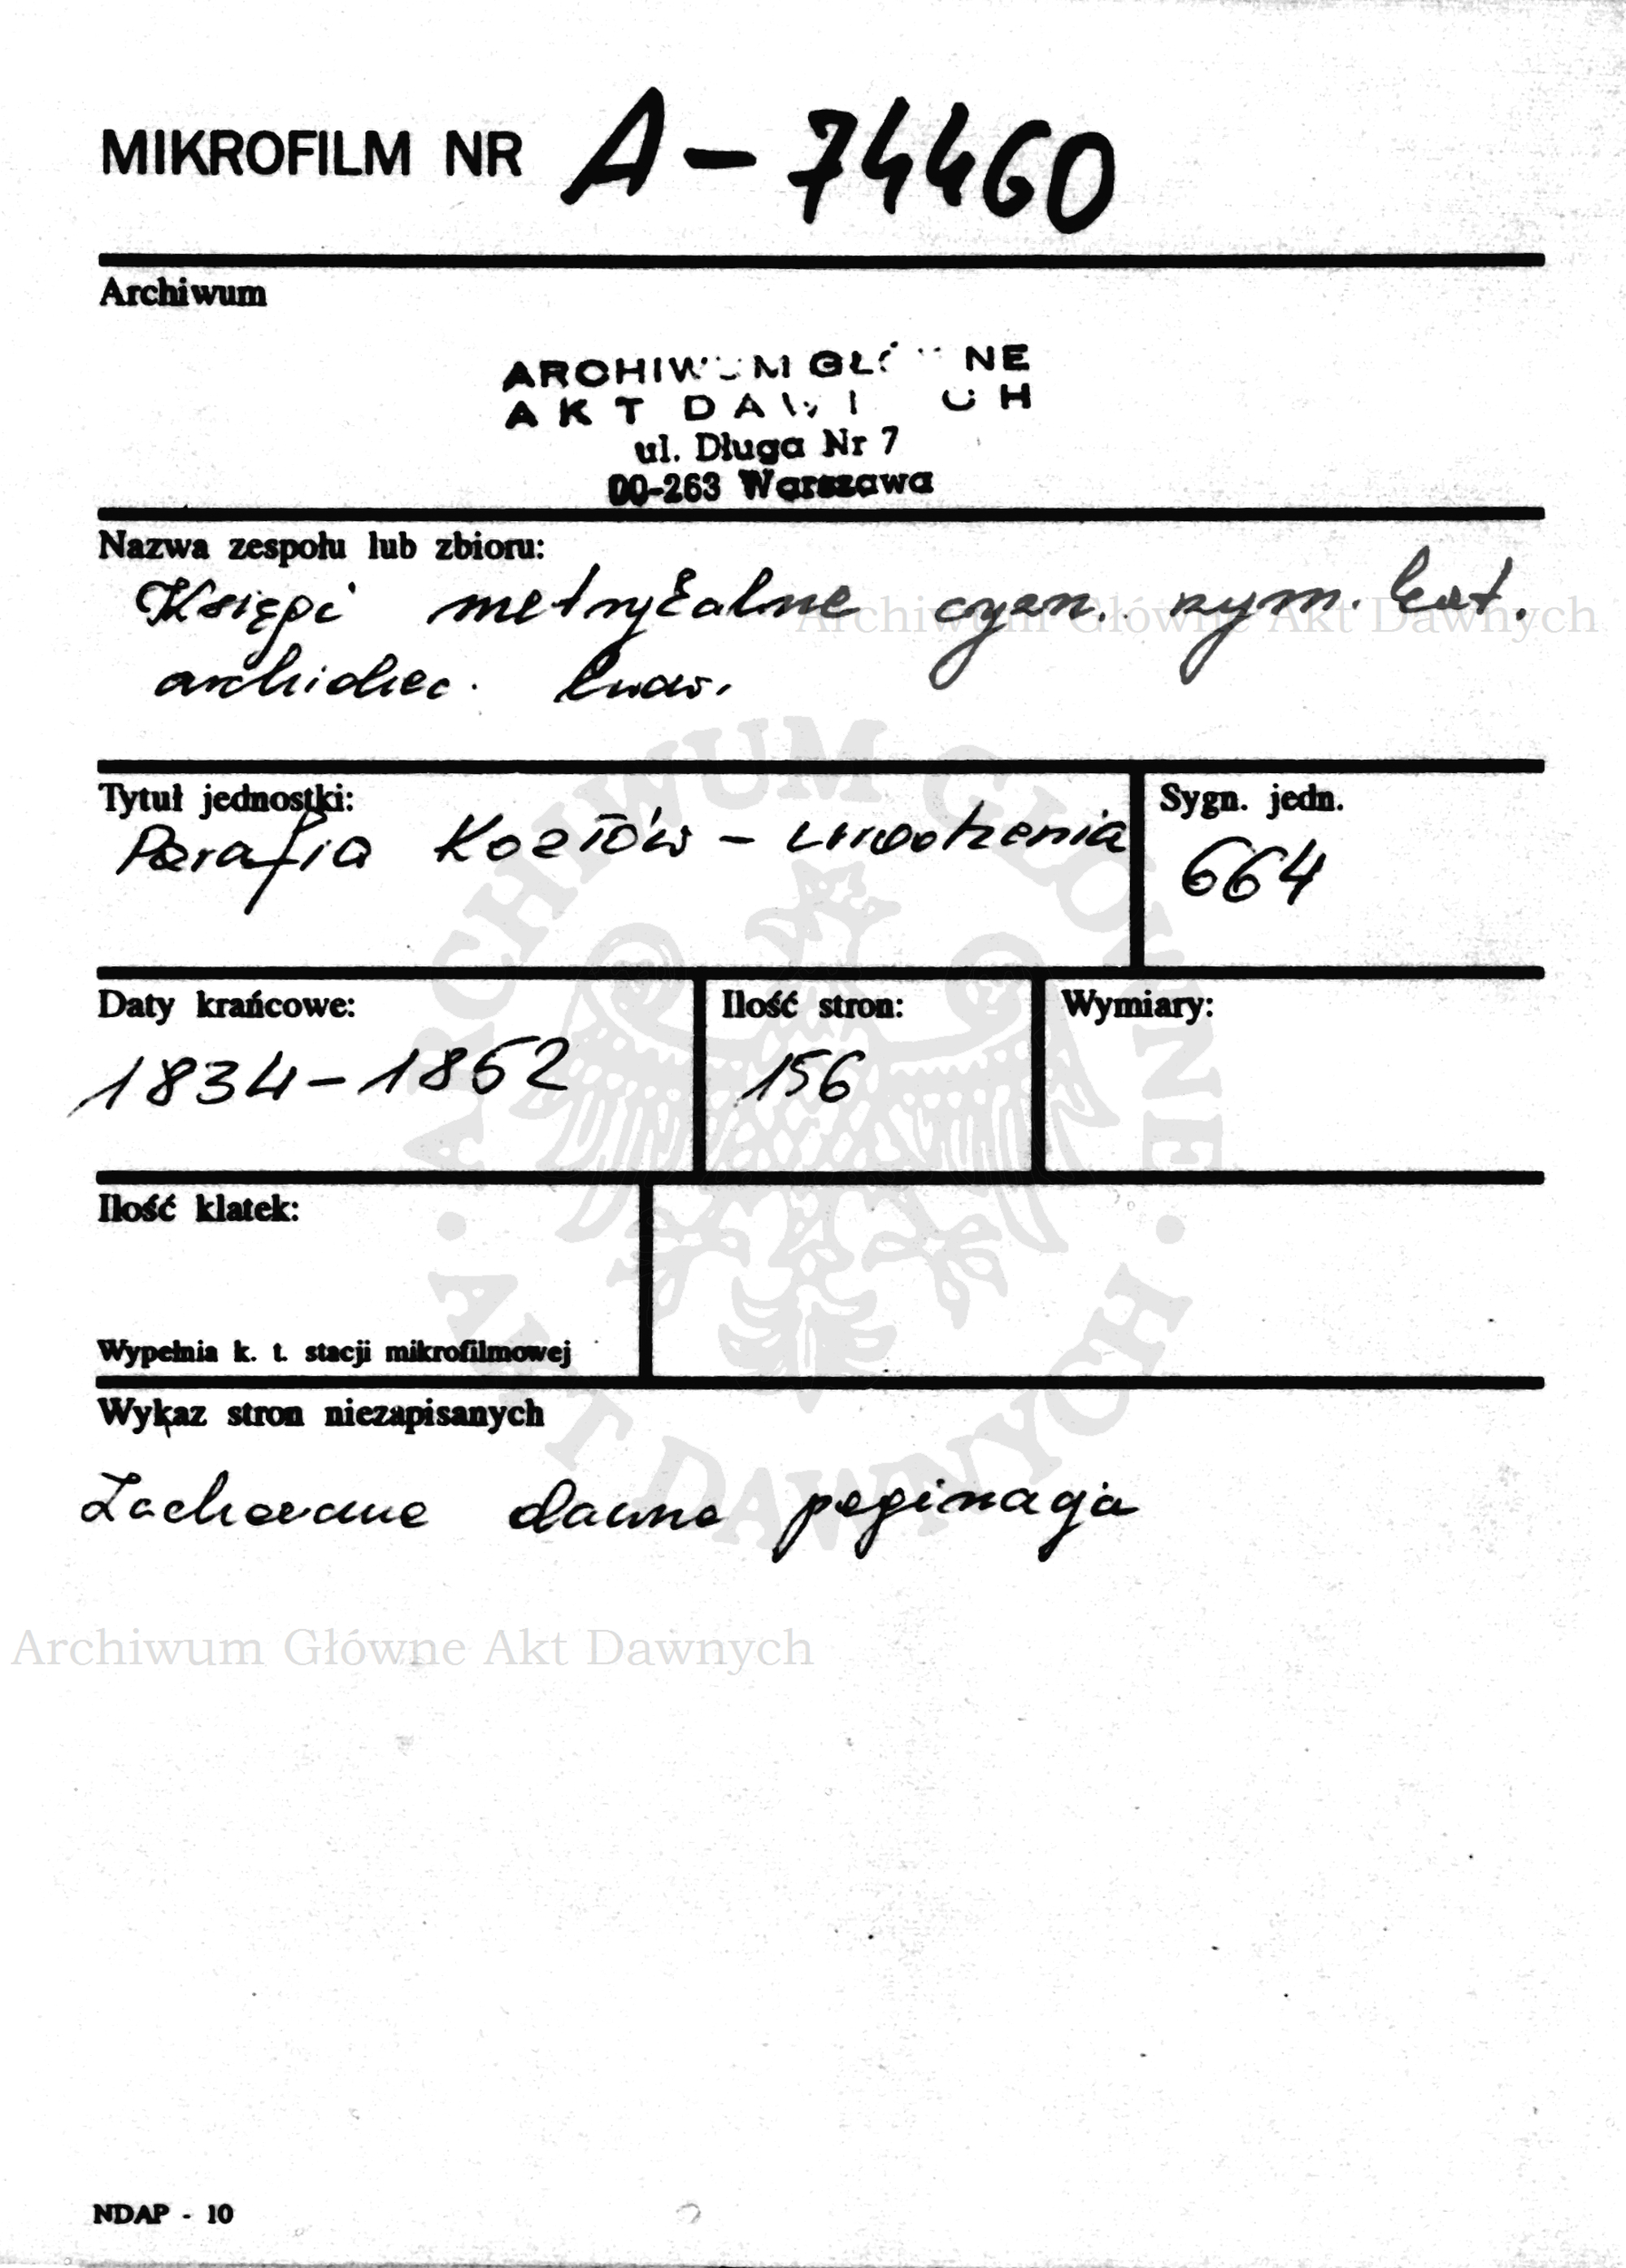 MIKROFILM NR A-74460
Archiwum
ARCHIWUM GŁÓWNE
AKT DAWNYCH
ul. Długa Nr 7
00-263 Warszawa
Nazwa zespołu lub zbioru:
Księgi metrykalne rzym. kat.
archidiec. lwow.
Archiwum Główne Akt Dawnych
Tytuł jednostki:
Parafia Kozłów - urodzenia
Sygn. jedn.
664
Daty krańcowe:
1834-1862
Ilość stron:
156
Wymiary:
Ilość klatek:
Wypełnia k. t. stacji mikrofilmowej
Wykaz stron niezapisanych
Zachowano dawną paginację
ARCHIWUM GŁÓWNE · AKT DAWNYCH ·
Archiwum Główne Akt Dawnych
NDAP - 10